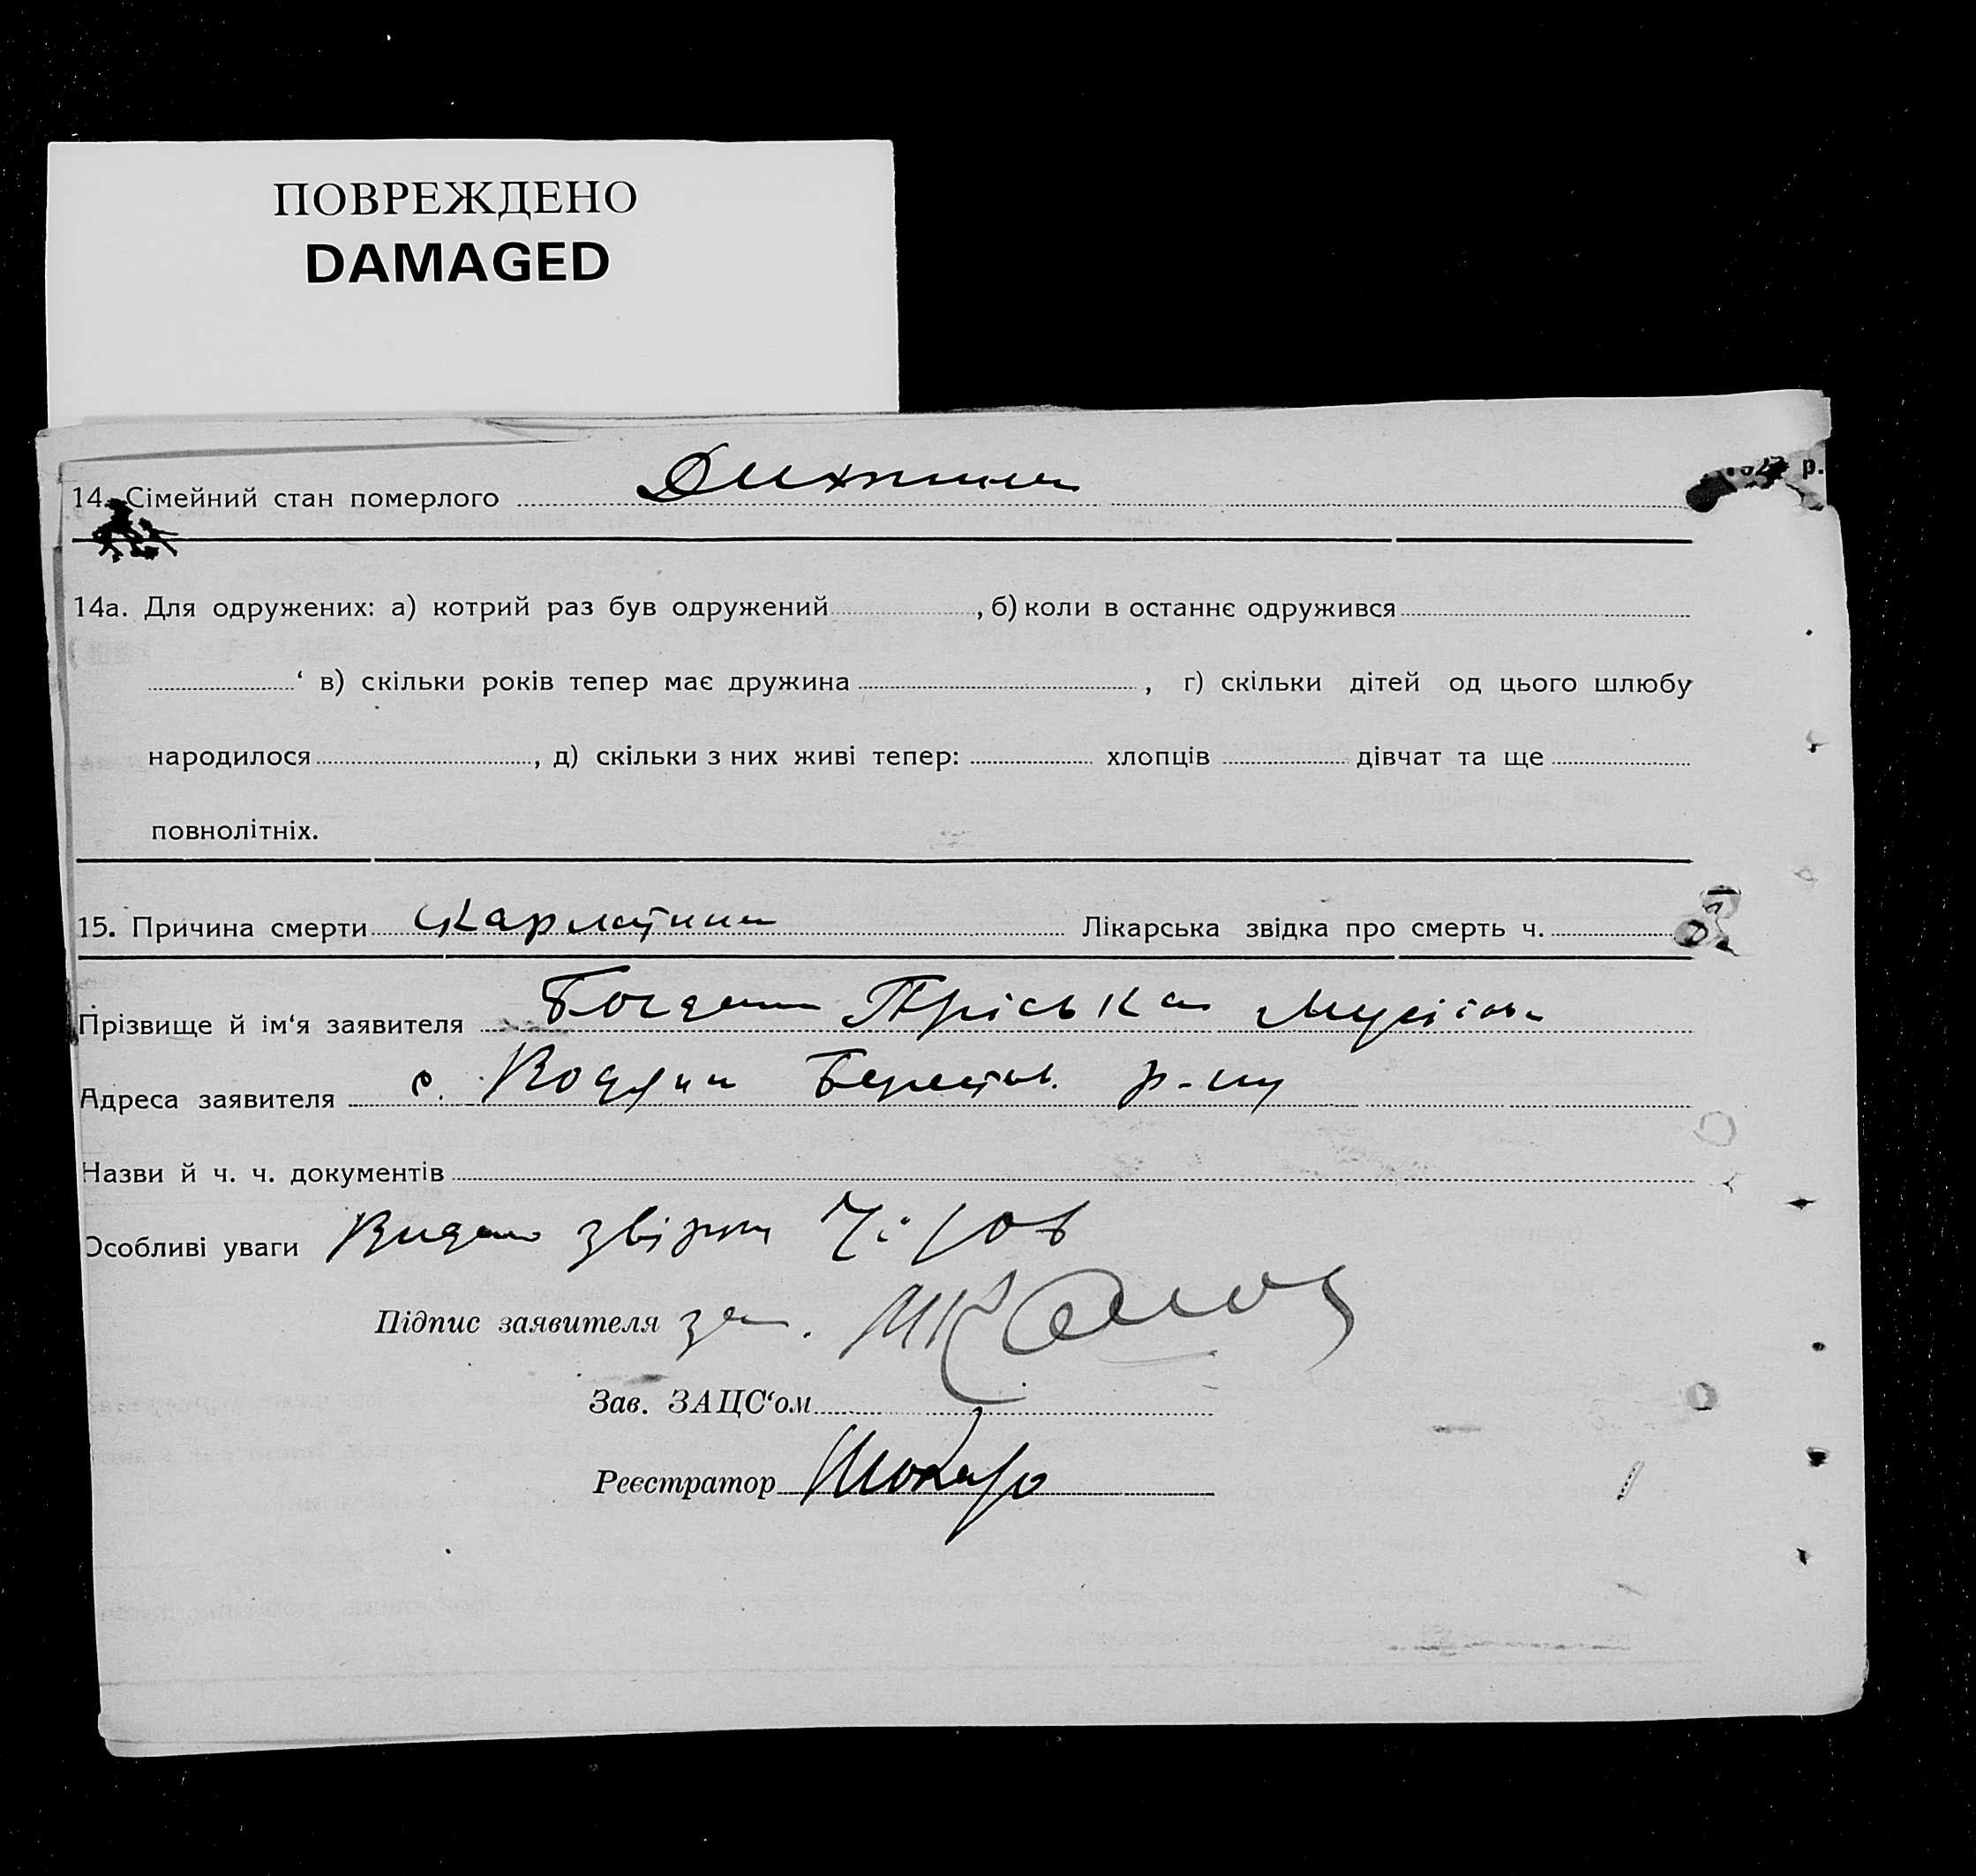 ПОВРЕЖДЕНО
DAMAGED
р.
14. Сімейний стан померлого Дитина
14а. Для одружених: а) котрий раз був одружений, б) коли в останнє одружився
‘ в) скільки років тепер має дружина, г) скільки дітей од цього шлюбу
народилося, д) скільки з них живі тепер: хлопців дівчат та ще
повнолітніх.
15. Причина смерти скарлятина Лікарська звідка про смерть ч.
Прізвище й ім‘я заявителя Богдан Пріська
Адреса заявителя с. р-ну
Назви й ч. ч. документів
Особливі уваги Видано
Підпис заявителя за.
Зав. ЗАЦС‘ом
Реєстратор